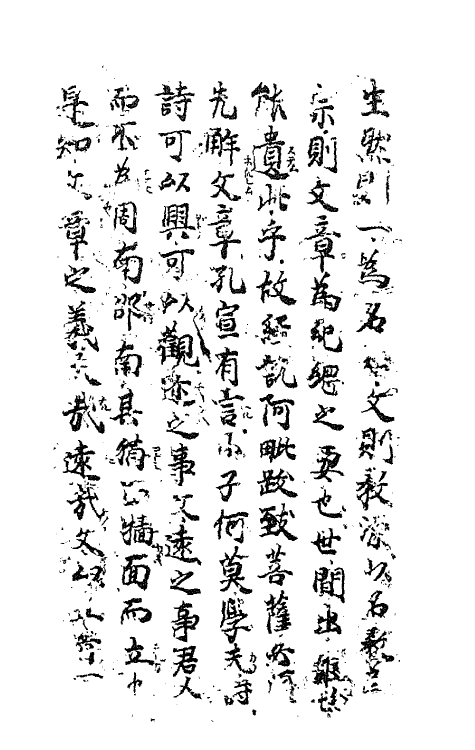 生然則一為名始文則教源以名教為
宗則文章為紀綱之要也世間出世
能遺此乎故經說阿毗跋致菩薩必須
先解文章孔宣有言小子何莫學夫詩
詩可以興可以觀迩之事父遠之事君人
而不為周南邵南其猶正牆面而立也
是知文章之義大哉遠哉文以